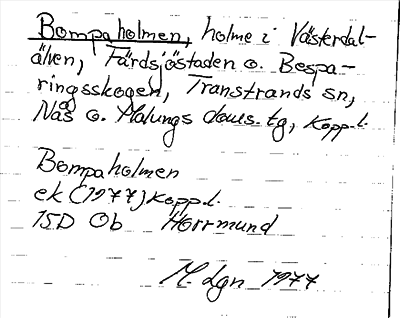 Bompaholmen, holme i Västerdal-
älven, Färdsjöstaden o. Bespa-
ringsskogen, Transtrands sn,
Nås o. Malungs doms. tg, Kopp.l.
Bompaholmen
ek (1977) Kopp.l.
15D Ob Horrmund
M. Lgn 1977